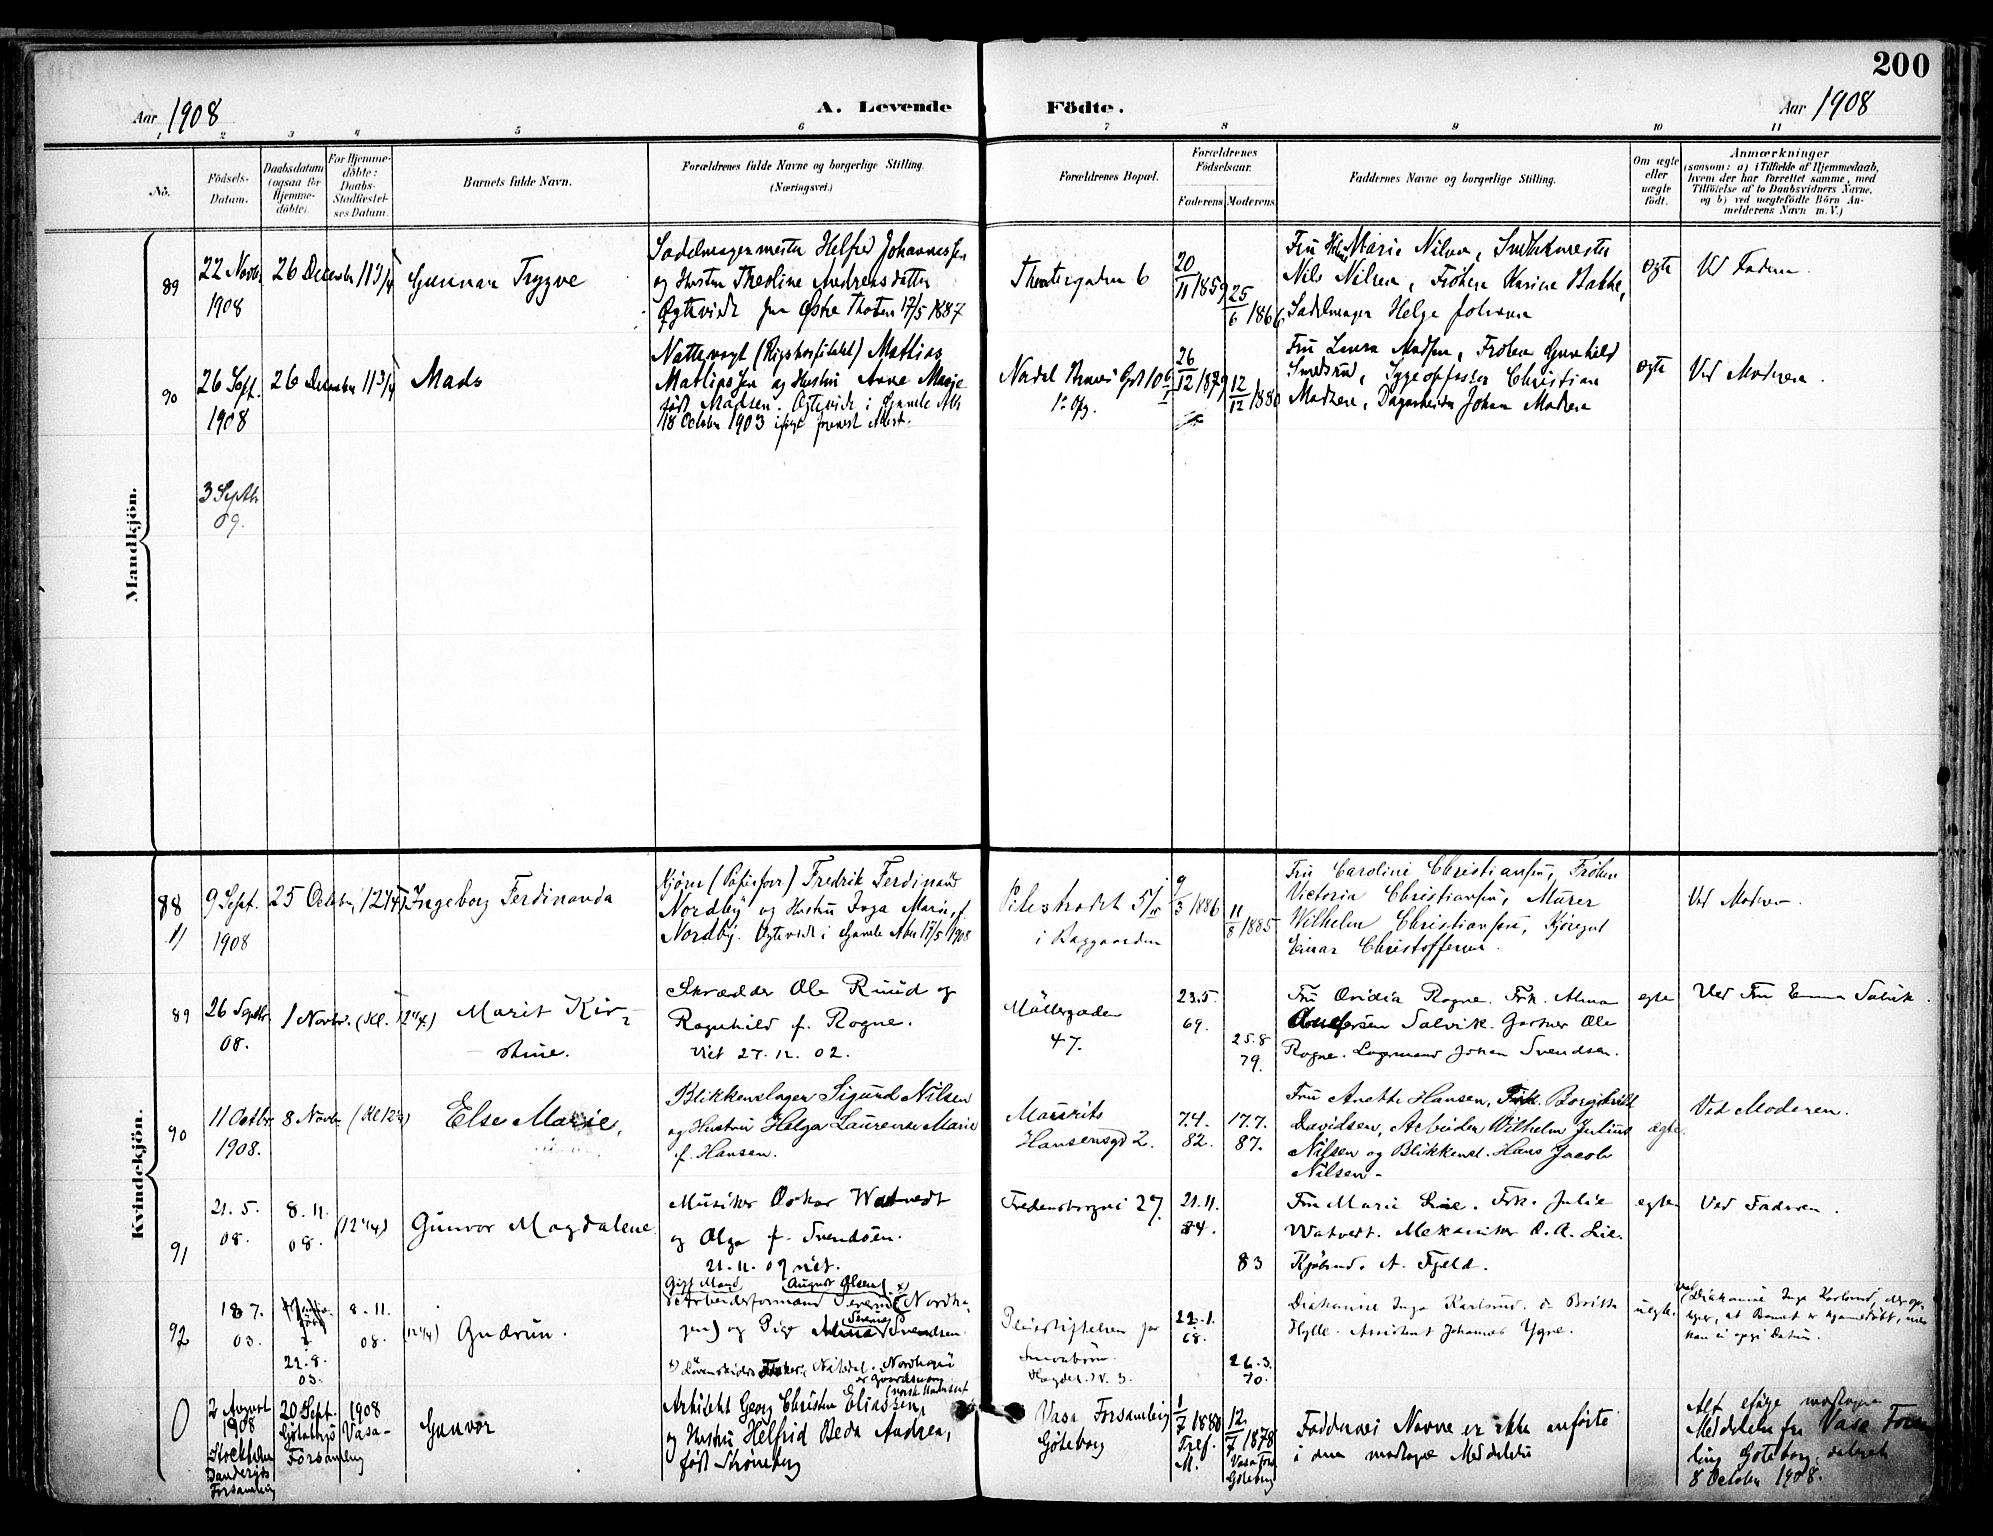 200
Aar 1908
A. Levende Födte.
Aar 1908
1 2 3 4 5 6 7 8 9 10 11
No.
Födsels-Datum.
Daabsdatum (ogsaa for Hjemme-döbte).
For Hjemme-döbte: Daabs-Stadfæstel-ses Datum.
Barnets fulde Navn.
Forældrenes fulde Navne og borgerlige Stilling. (Næringsvei.)
Forældrenes Bopæl.
Forældrenes Födselsaar.
Faderens Moderens
Faddernes Navne og borgerlige Stilling.
Om ægte eller uægte födt.
Anmærkninger
(saasom: a) i Tilfælde af Hjemmedaab,
hvem der har forrettet samme, med
Tilföielse af to Daabsvidners Navne,
og b) ved uægtefödte Börn An-
melderens Navn m. V.)
Mandkjön.
89
22 Novbr 1908
26 December 11 3/4
Gunnar Trygve
Sadelmagermester Helfred Johannessen
og Hustru Theoline Andreasdatter
Ægteviede paa Østre Thoten 17/5 1887
Theatergaden 6
20/11 1859
25/6 1866
Marie Nilsen,
Nils Nilsen, Frøken Karine Bakke,
Sadelmager Helge Johansen
ægte
Ved Faderen.
90
26 Sept. 1908
26 December 11 3/4
Mads
Nattevagt (Rigshospitalet) Mathias
Mathiassen og Hustru Anne
født Madsen. Ægteviede i Gamle Aker
18 October 1903
26/12 1879
12/12 1880
Fru Laura Madsen, Frøken Gunhild
Smedsrud, Sygepasser Christian
Madsen, Dagarbeider Johan Madsen
ægte
Ved Moderen.
3 Septbr 09.
Kvindekjön.
88
9 Sept. 1908
25 October 12 1/4
Ingeborg Ferdinanda
Fredrik Ferdinand
Nordby og Hustru Inga Marie f.
Nordby. Ægteviede i Gamle Aker 17/5 1908
Pilestrædet
i Baggaarden
9/3 1886
11/8 1885
Fru Caroline Christiansen, Frøken
Victoria Christiansen, Murer
Wilhelm Christiansen, Kjøregut
Einar Christoffersen.
Ved Moderen.
89
26 Septbr. 08.
1 Novbr. (Kl. 12 1/4)
Marit Kir-
stine.
Skrædder Ole Ruud og
Ragnhild f. Rogne.
Viet 27.12.02.
Møllergaden 47.
23.5. 69.
25.8 79.
Fru Ovidia Rogne. Frk. Alma
Salvik. Gartner Ole
Rogne. Lagermand Johan Svendsen.
egte
Ved Fru Emma Salvik.
90
11 Octbr 1908.
8 Novbr (Kl 12 1/4)
Else Marie.
Blikkenslager Sigurd Nilsen
og Hustru Helga Laurense Marie
f. Hansen.
Mauritz
Hansensgd 2.
7.4. 82.
17.7. 87.
Fru Anette Hansen, Frk. Borghild
Davidsen, Arbeider Wilhelm Julius
Nilsen og Blikkensl. Hans Jacob
Nilsen.
ægte.
Ved Moderen.
91
21.5. 08.
8.11. 08.
(12 1/4)
Gunvor Magdalene
Musiker Oskar Watvedt
og Olga f. Svendsen.
21.11.07 viet.
Fredensborgvei 27.
21.11. 84.
83
Fru Marie Lie. Frk. Julie
Watvedt. Mekaniker O. A. Lie.
Kjøbmd. A. Fjeld.
egte
Ved Faderen.
92
18.7. 03.
22.8. 03.
8.11. 08.
(12 1/4)
Gudrun.
Gift Mand August Olsen
Arbeidsformand Severin (Nordha-
gen) og Pige Svendsen.
Pleiestiftelsen for
Smaabørn.
22.1. 68.
26.3. 70.
Diakonisse Inga Karlsrud. do Britha
Hylle. Assistent Johannes Ygre.
uegte.
Ved Diakonisse Inga Karlsrud, der op-
lyser, at Barnet er hjemmedøbt, men
kan ei opgi Datum.
0
2 August 1908
Stockholm
Danderyds
Forsamling
20 Sept. 1908
Göteborg Vasa-
Forsamling
Gunvor
Arkitekt Georg Christian Eliassen,
og Hustru Helfrid Beda Andrea,
født Strömberg
Vasa Forsamling
Göteborg
1/7 1880
12/7 1878
Vasa Fors
Göteborg
Faddernes Navne er ikke anførte
i den modtagne Meddelelse
modtagen
Meddelelse fra Vasa Forsam-
ling Göteborg, dateret
8 October 1908.